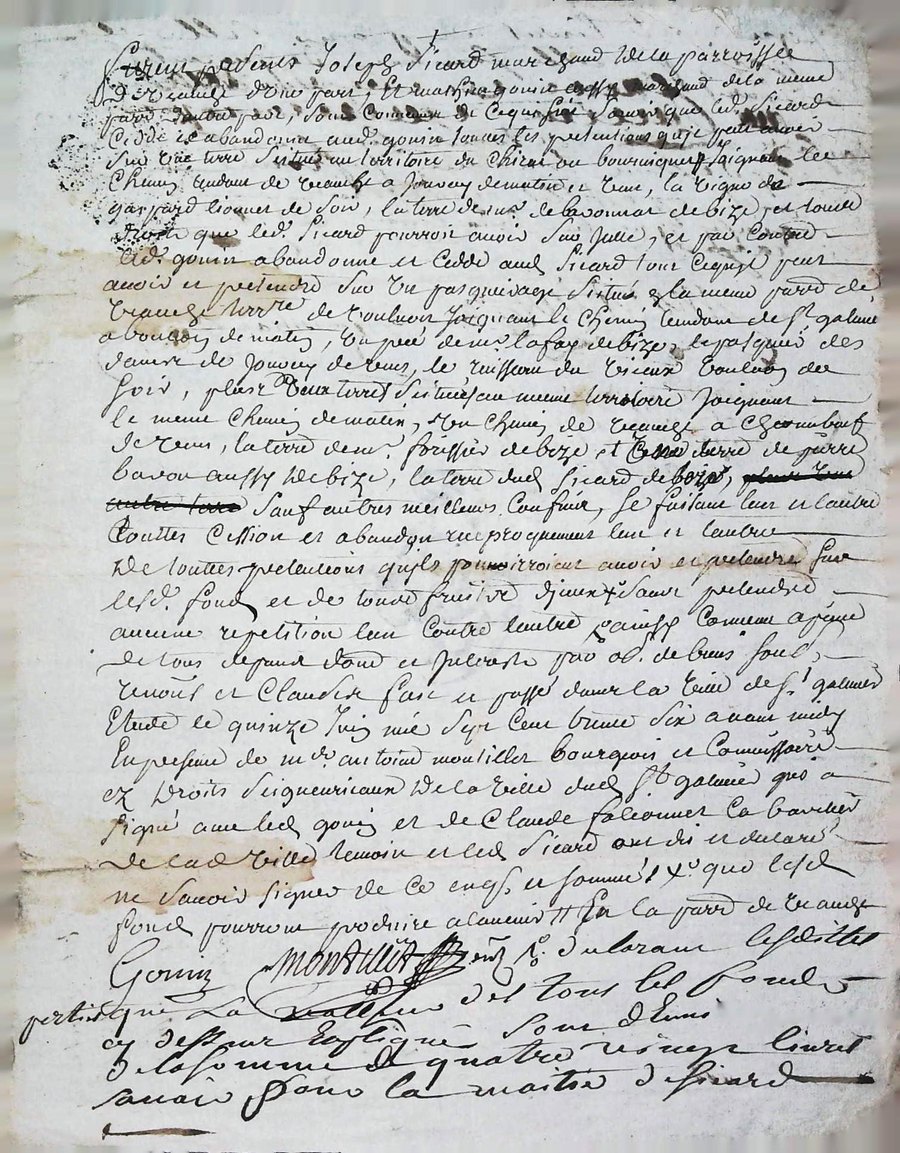 furent presents Joseph Sicard marchand de la parroisse
de veauche d'une part, Et mathieu gonin aussy marchand de la meme
parr. dautre part, sont Convenus de cequi suit savoir que led. Sicard
Cedde et abandonne aud. gonin toutes les pretentions quil peut avoir
sur une terre Située au territoire du Chiene ou joignant le
Chemin tendant de veauche a Jourcey de matin et vent, la vigne de
gaspard lionnet de Soir, la terre de mr. de de bize, et toute
droits que led. Sicard pourroit avoir Sur Jcelle, et par Contre
led. gonin abandonne et Cedde aud Sicard tout cequil peut
avoir et pretendre Sur un pasqueirage Situé en la meme parr. de
veauche terre de voulvon Joignant le Chemin tendant de St. galmier
a bouteon de matin, un pré de mr. lafay de bize, le pasquier des
dames de Jourcey de vent, le ruisseau du vieux voulvon de
Soir, plus deux terres Situées au meme territoire Joignant
le meme Chemin de matin, un Chemin de veauche a Chambeuf
de vent, la terre de mr. forissier de bize, et terre de pierre
aussy de bize, la terre dud Sicard de bize,
Sauf autres meilleurs Confins, Se faisant lun et lautre
touttes Cession et abandon reciproquement lun et lautre
De touttes pretentions quils pourroient avoir et pretendre Sur
lesd. fonds et de tous fruits d'jceux Sans pretendre
aucune repetition lun Contre lautre ainsy Convenu a peine
de tous depends dom et Jnterests par ob. de biens Soub.
renons et Clauses fait et passé dans la ville de St galmier
Etude le quinze Juin mil Sept Cent trente Six avant midy
En presence de mr. antoine montillet bourgeois et Commissaire
ez Droits Seigneuriaux de la ville dud St galmier qui a
Signé avec led gonin et de Claude falconnet Cabartier
de lad ville temoin et led Sicard ont dit et declaré
ne Savoir Signer de ce enqs. et sommés X. que lesd
fonds pourront produire a lavenir // En la parr. de veauche
Gonin Montillet declarant lesdittes
parties que La valleur des tous les fonds
cy dessus Expliqués Sont dEnvi
de la Somme de quatre vingt livres
savoir pour la moitié de Sicard